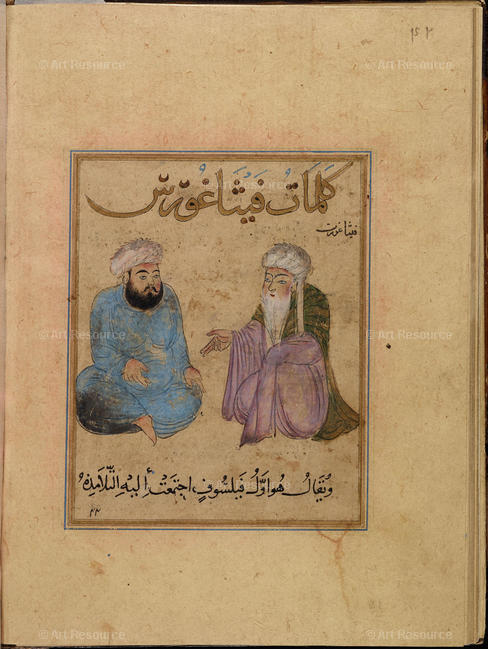 © Art Resource © Art Resource
كَلِمَاتُ فِيثَاغُورَسَ
فيثاغورس
© Art Resource © Art Resource
وَيُقَالُ هُوَ أَوَّلُ فَيلَسُوفٍ اجْتَمَعَتْ إِلَيْهِ التَّلَامِذَهُ
© Art Resource © Art Resource